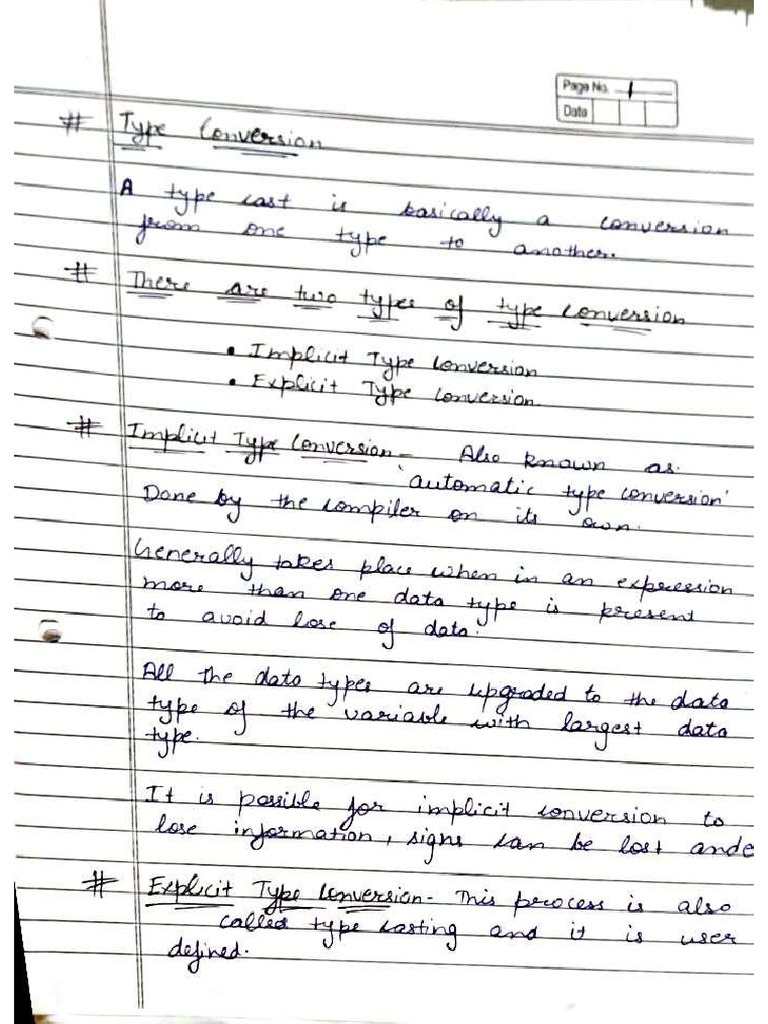 Page No. 1
Date
# Type Conversion
A type cast is basically a conversion
from one type to another.
# There are two types of type conversion
• Implicit Type Conversion
• Explicit Type Conversion.
# Implicit Type Conversion - Also known as
'automatic type conversion'
Done by the compiler on its own.
Generally takes place when in an expression
more than one data type is present
to avoid lose of data.
All the data types are upgraded to the data
type of the variable with largest data
type.
It is possible for implicit conversion to
lose information, signs can be lost ande
# Explicit Type Conversion - This process is also
called type casting and it is user
defined.